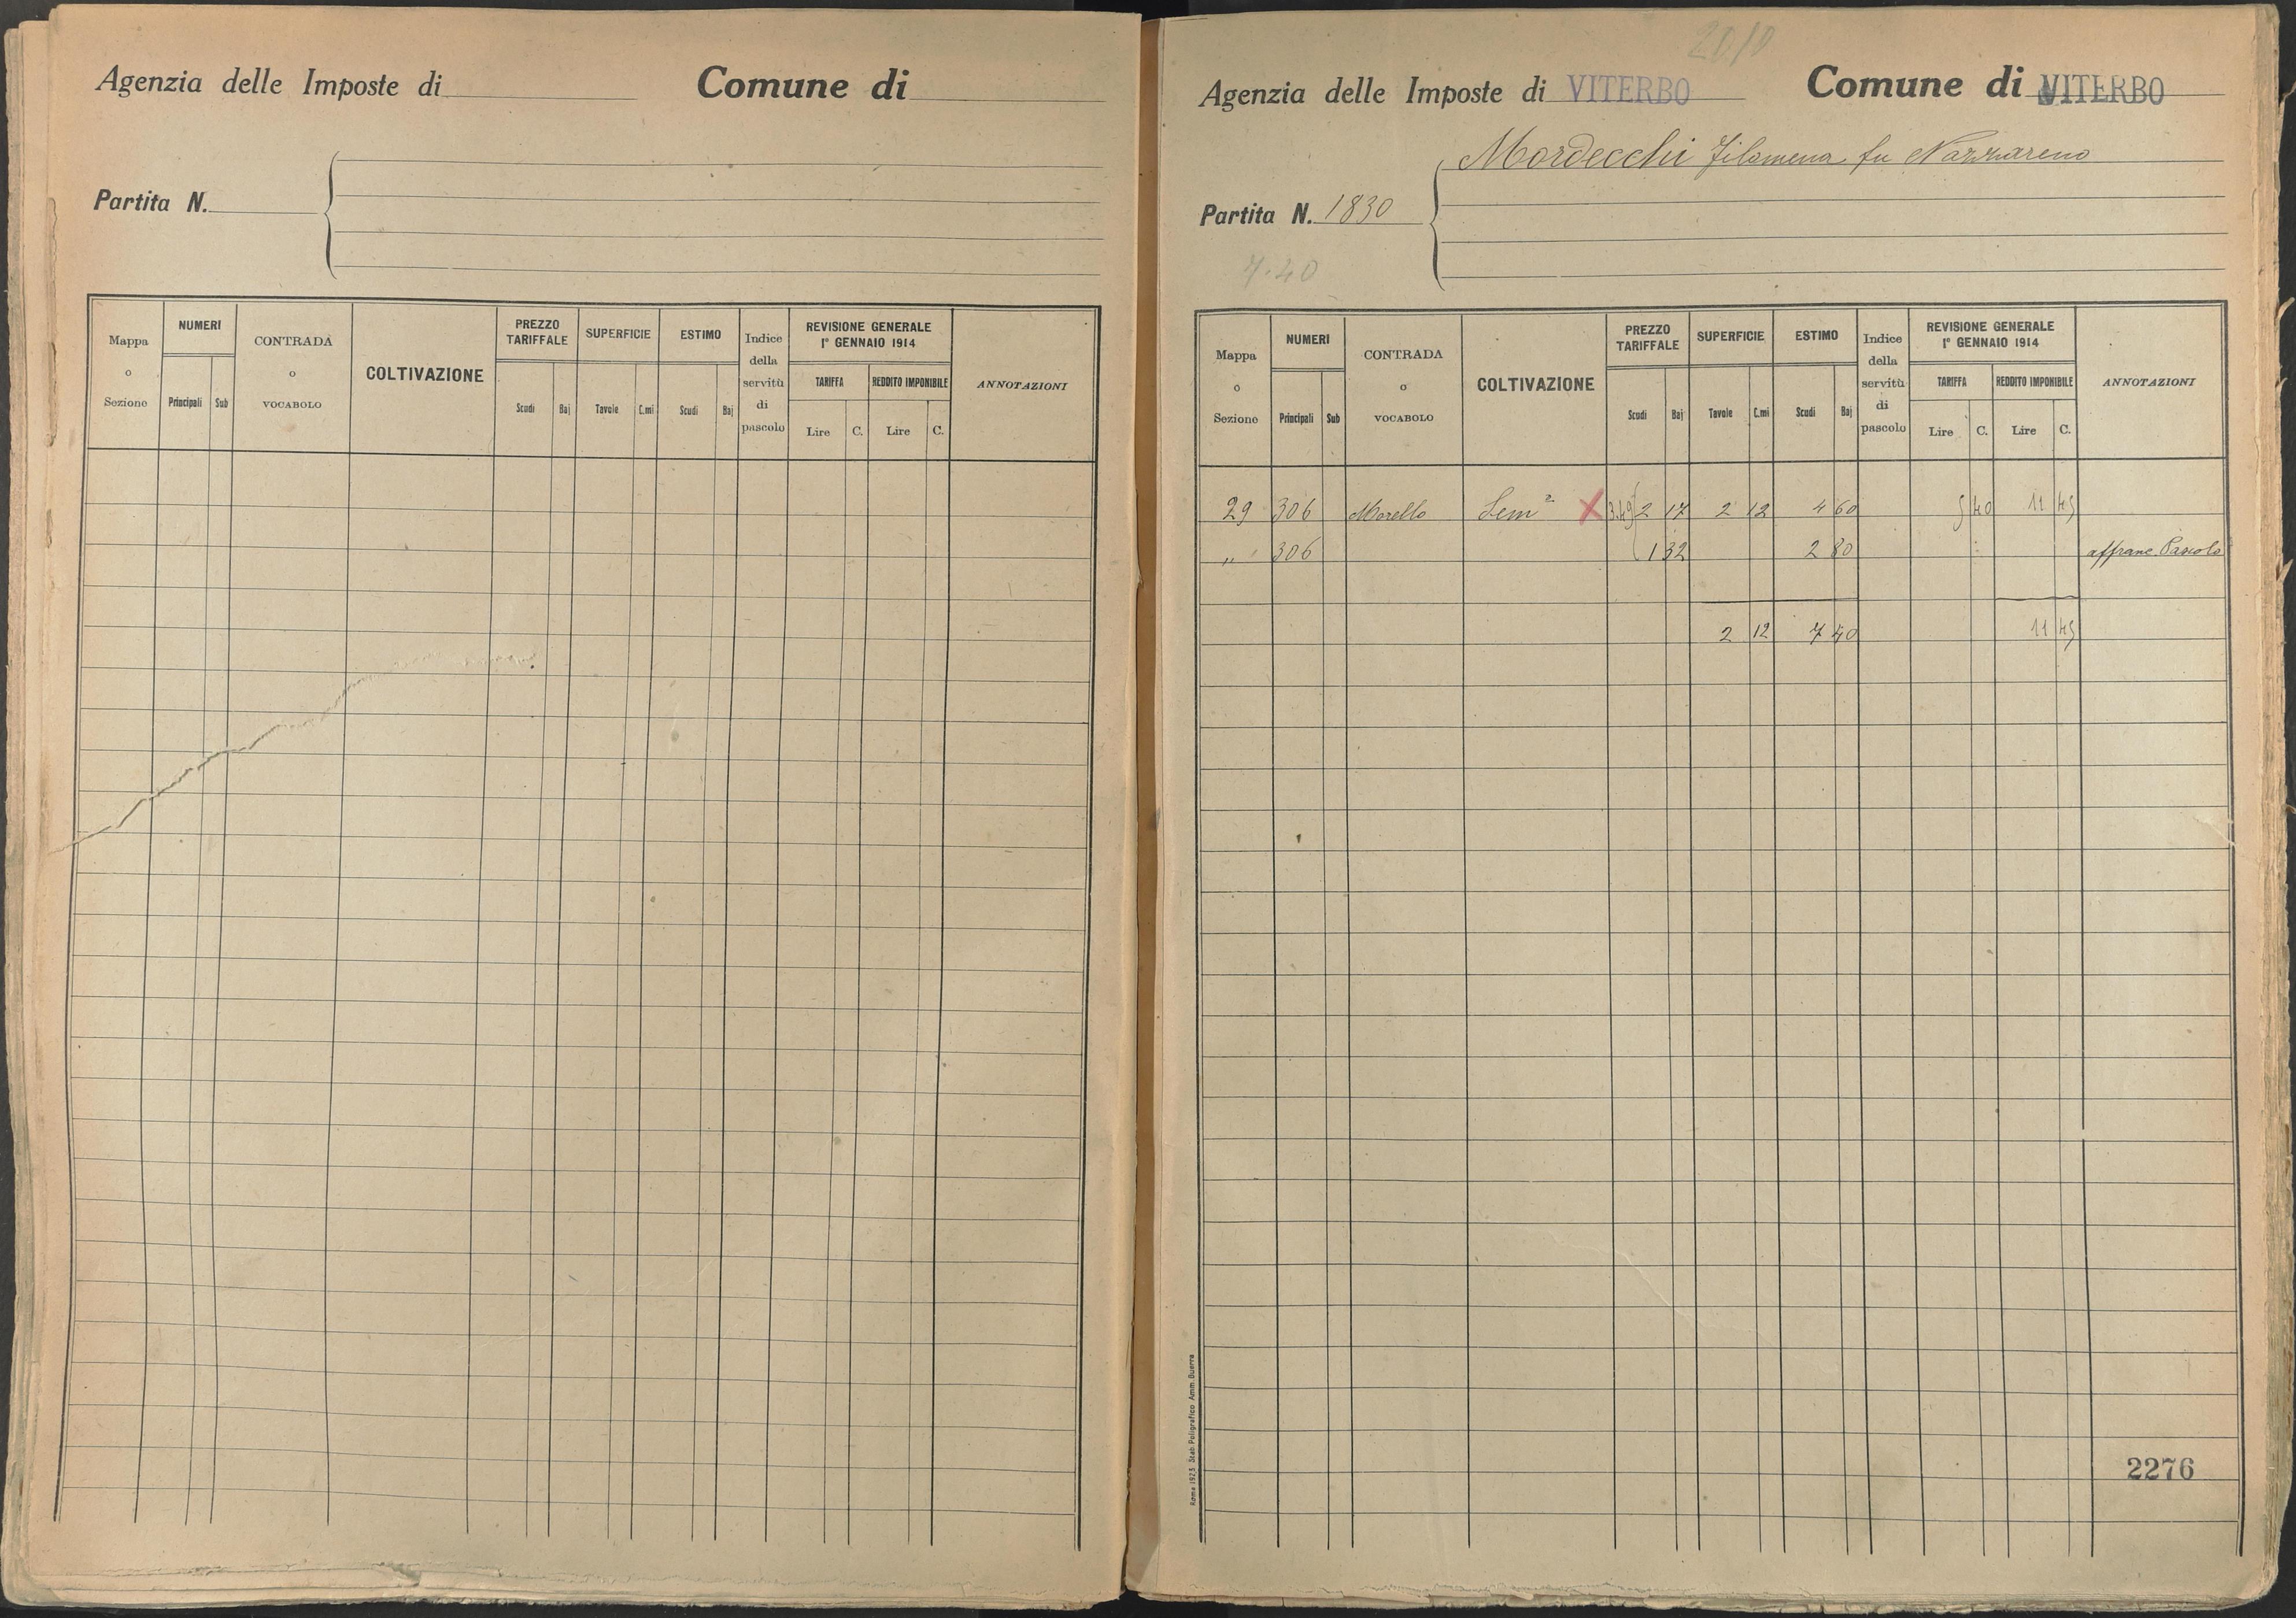 Agenzia delle Imposte di
Comune di
Partita N.
Mappa o Sezione
NUMERI
Principali Sub
CONTRADA o VOCABOLO
COLTIVAZIONE
PREZZO TARIFFALE
Scudi Baj
SUPERFICIE
Tavole C.mi
ESTIMO
Scudi Baj
Indice della servitù di pascolo
REVISIONE GENERALE
1° GENNAIO 1914
TARIFFA REDDITO IMPONIBILE
Lire C. Lire C.
ANNOTAZIONI
Agenzia delle Imposte di VITERBO
Comune di VITERBO
Mordecchi Filomena fu Nazzareno
Partita N. 1830
7.40
Mappa o Sezione
NUMERI
Principali Sub
CONTRADA o VOCABOLO
COLTIVAZIONE
PREZZO TARIFFALE
Scudi Baj
SUPERFICIE
Tavole C.mi
ESTIMO
Scudi Baj
Indice della servitù di pascolo
REVISIONE GENERALE
1° GENNAIO 1914
TARIFFA REDDITO IMPONIBILE
Lire C. Lire C.
ANNOTAZIONI
29 306 Morello Sem° X 3.49 2 17 2 12 4 60 5 40 11 45
„ 306 1 32 2 80 affranc. Pascolo
2 12 7 40 11 45
Roma 1923 Stab. Poligrafico Amm. Guerra
2276